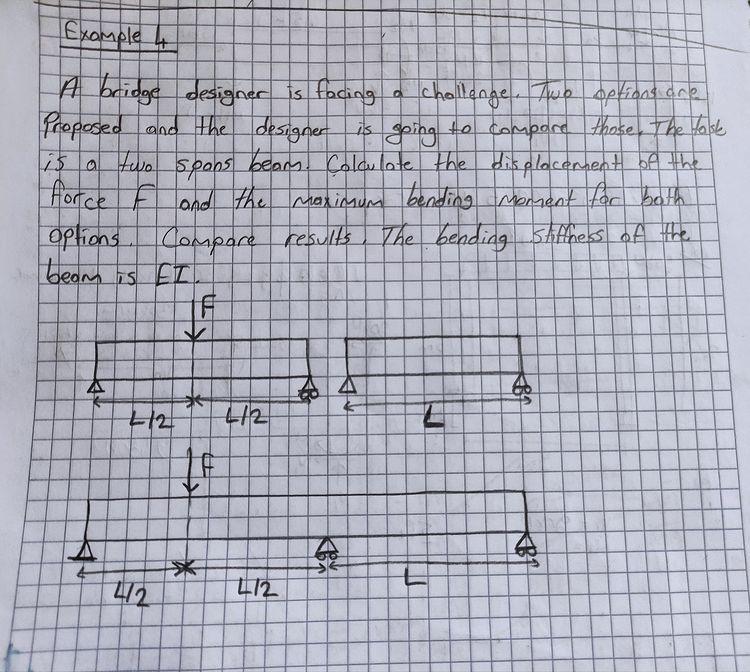 Example 4
A bridge designer is facing a challenge. Two options are
Proposed and the designer is going to compare those. The task
is a two spans beam. Calculate the displacement of the
force F and the maximum bending moment for both
options. Compare results. The bending stiffness of the
beam is EI.
F
L/2 L/2 L
F
L/2 L/2 L